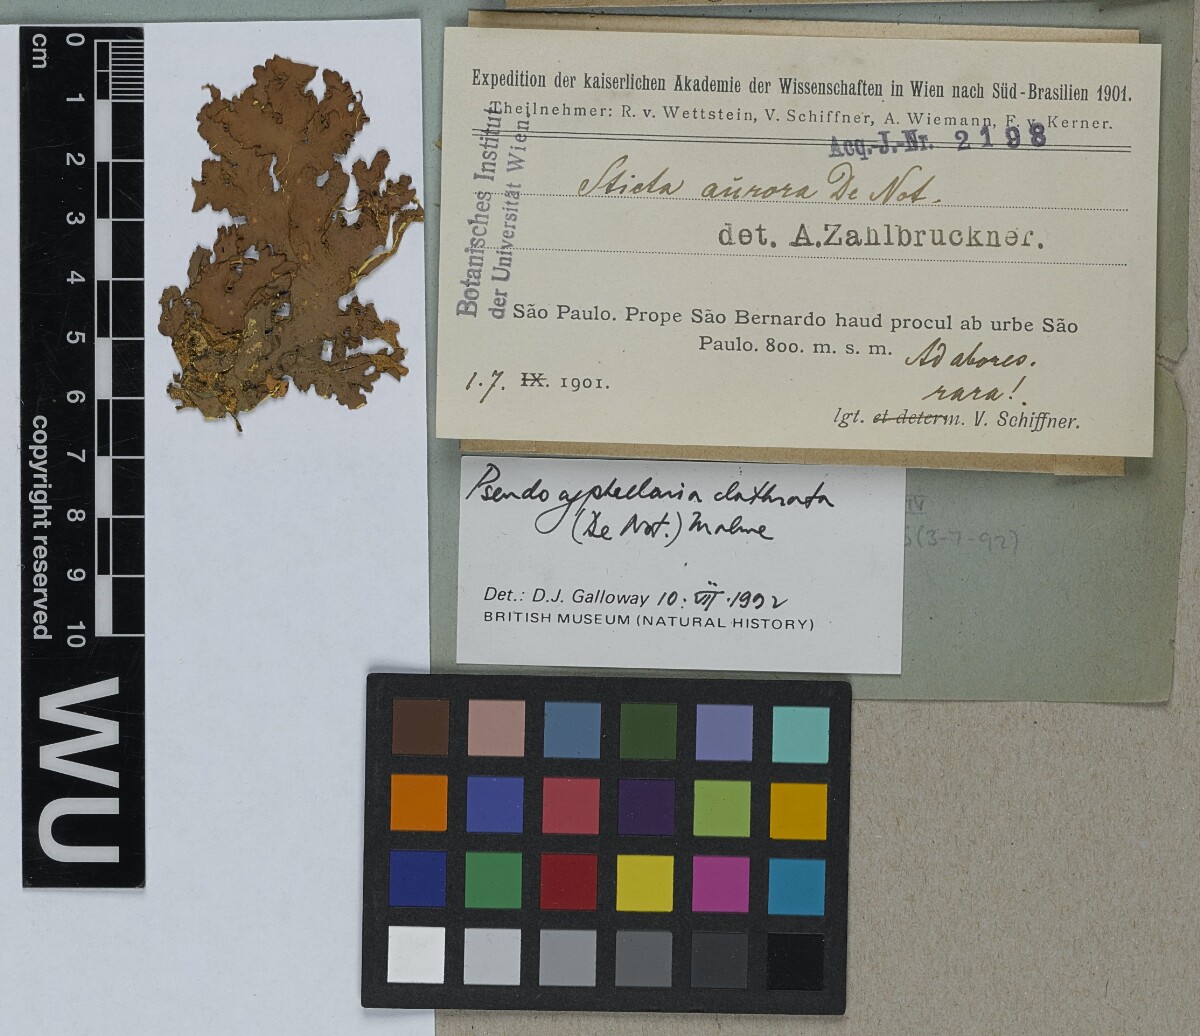 Expedition der kaiserlichen Akademie der Wissenschaften in Wien nach Süd-Brasilien 1901.
Theilnehmer: R. v. Wettstein, V. Schiffner, A. Wiemann, F. v. Kerner.
Acq.-J.-Nr. 2198
Botanisches Institut
der Universität Wien.
Sticta aurora De Not.
det. A.Zahlbruckner.
São Paulo. Prope São Bernardo haud procul ab urbe São
Paulo. 800. m. s. m. Ad abores.
rara!
1.7. IX. 1901.
lgt. et determ. V. Schiffner.
Pseudocyphellaria clathrata
(De Not.) Malme
Det.: D.J. Galloway 10.VII.1992
BRITISH MUSEUM (NATURAL HISTORY)
IV
(3-7-92)
cm
0
1
2
3
4
5
6
7
8
9
10
copyright reserved
WU